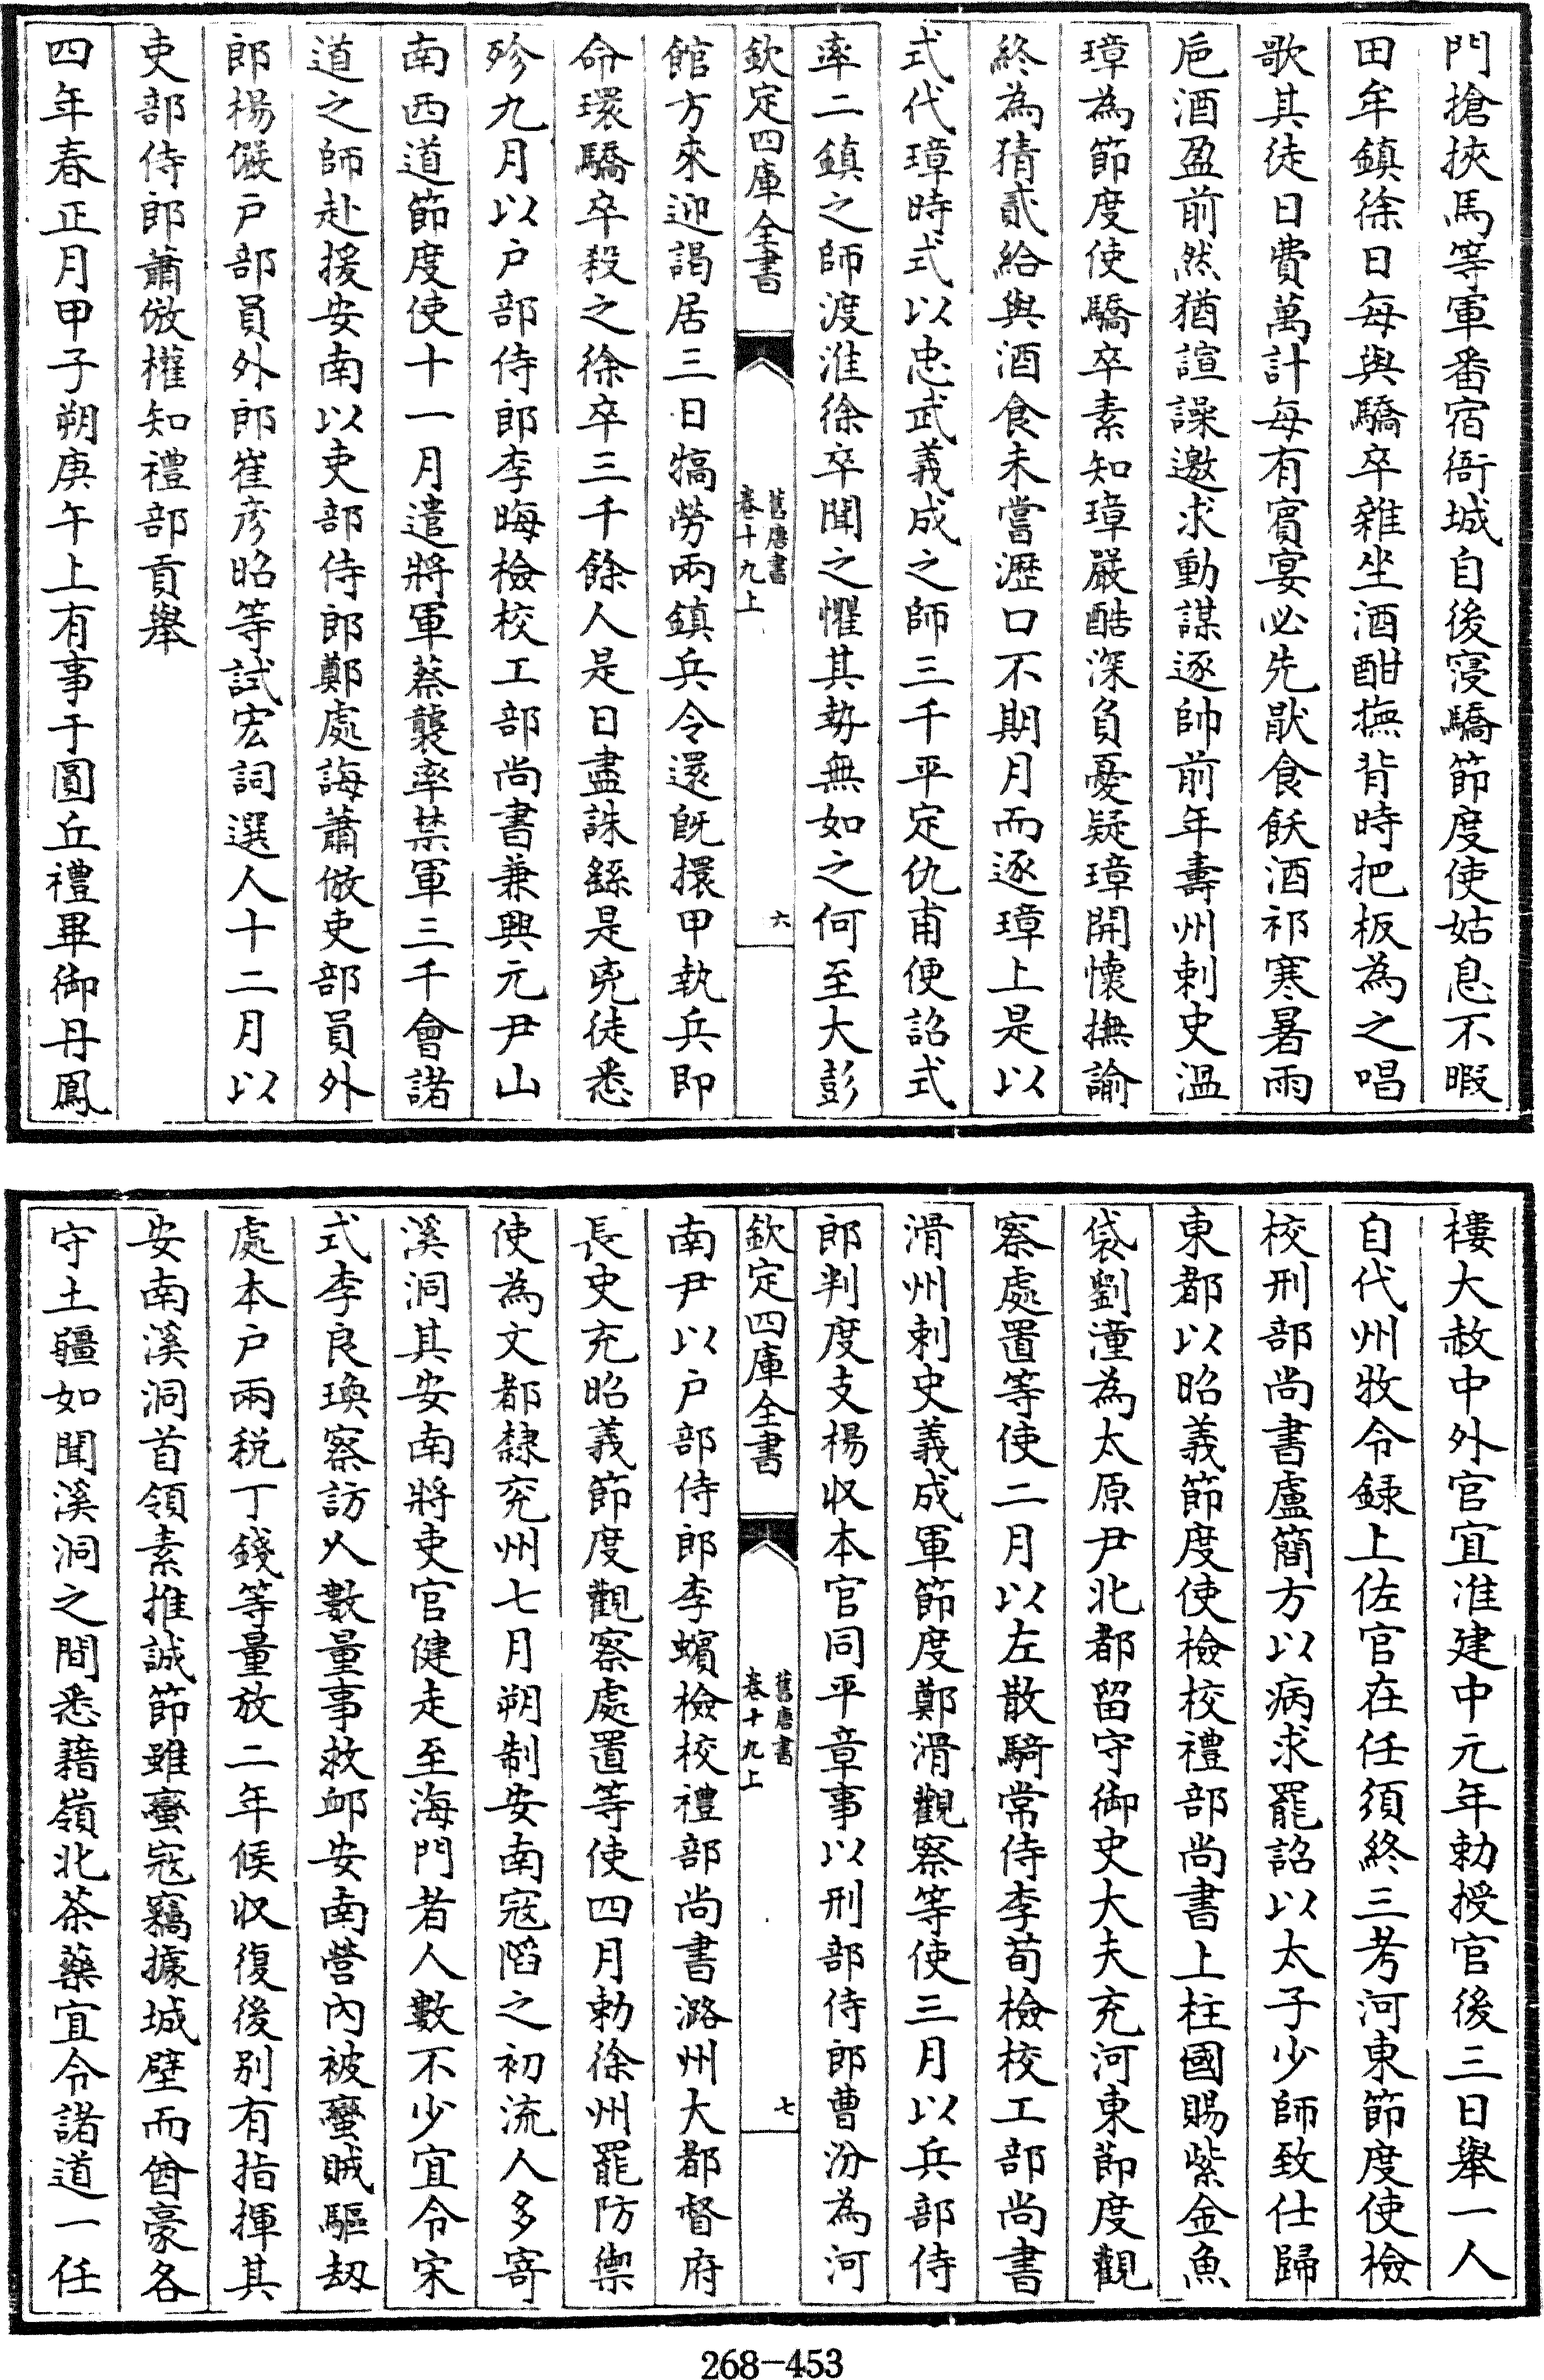 門搶挾馬等軍番宿衙城自後寖驕節度使姑息不暇
田牟鎮徐日每與驕卒雜坐酒酣撫背時把板為之唱
歌其徒日費萬計每有賓宴必先猒食飫酒祁寒暑雨
巵酒盈前然猶諠譟邀求動謀逐帥前年壽州刺史溫
璋為節度使驕卒素知璋嚴酷深負憂疑璋開懷撫諭
終為猜貳給與酒食未嘗瀝口不期月而逐璋上是以
式代璋時式以忠武義成之師三千平定仇甫便詔式
率二鎮之師渡淮徐卒聞之懼其勢無如之何至大彭
欽定四庫全書
舊唐書
卷十九上
六
館方來迎謁居三日犒勞兩鎮兵令還旣擐甲執兵即
命環驕卒殺之徐卒三千餘人是日盡誅繇是兇徒悉
殄九月以戶部侍郎李晦檢校工部尚書兼興元尹山
南西道節度使十一月遣將軍蔡襲率禁軍三千會諸
道之師赴援安南以吏部侍郎鄭處誨蕭倣吏部員外
郎楊儼戶部員外郎崔彥昭等試宏詞選人十二月以
吏部侍郎蕭倣權知禮部貢舉
四年春正月甲子朔庚午上有事于圓丘禮畢御丹鳳
樓大赦中外官宜准建中元年勅授官後三日舉一人
自代州牧令録上佐官在任須終三考河東節度使檢
校刑部尚書盧簡方以病求罷詔以太子少師致仕歸
東都以昭義節度使檢校禮部尚書上柱國賜紫金魚
袋劉潼為太原尹北都留守御史大夫充河東節度觀
察處置等使二月以左散騎常侍李荀檢校工部尚書
滑州刺史義成軍節度鄭滑觀察等使三月以兵部侍
郎判度支楊收本官同平章事以刑部侍郎曹汾為河
欽定四庫全書
舊唐書
卷十九上
七
南尹以戶部侍郎李蠙檢校禮部尚書潞州大都督府
長史充昭義節度觀察處置等使四月勅徐州罷防禦
使為文都隸兗州七月朔制安南寇陷之初流人多寄
溪洞其安南將吏官健走至海門者人數不少宜令宋
式李良瑍察訪人數量事救邮安南營內被蠻賊驅刼
處本戶兩税丁錢等量放二年候收復後別有指揮其
安南溪洞首領素推誠節雖蠻寇竊據城壁而酋豪各
守土疆如聞溪洞之間悉藉嶺北茶藥宜令諸道一任
268-453